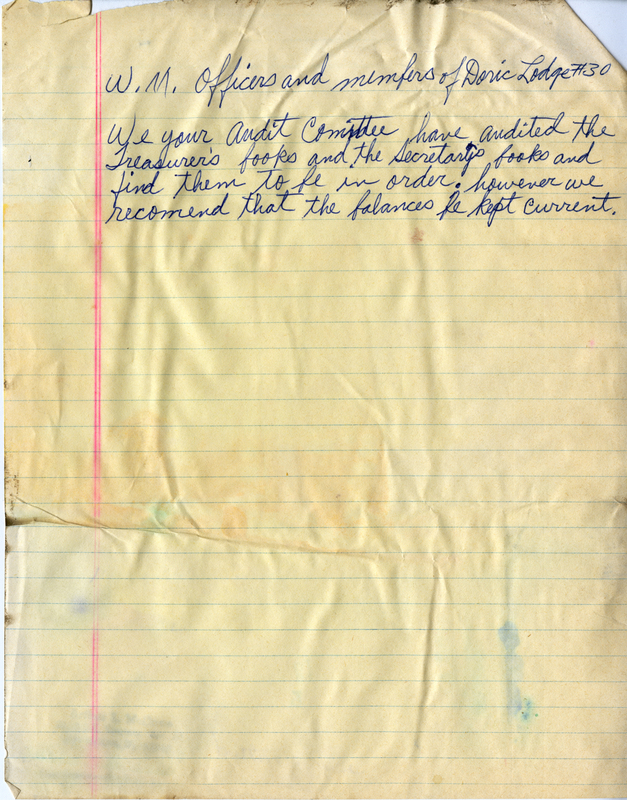 W. M. Officers and members of Doric Lodge #30
We your Audit Comittee have audited the
Treasurer's books and the Secretary's books and
find them to be in order. however we
recomend that the balances be kept current.